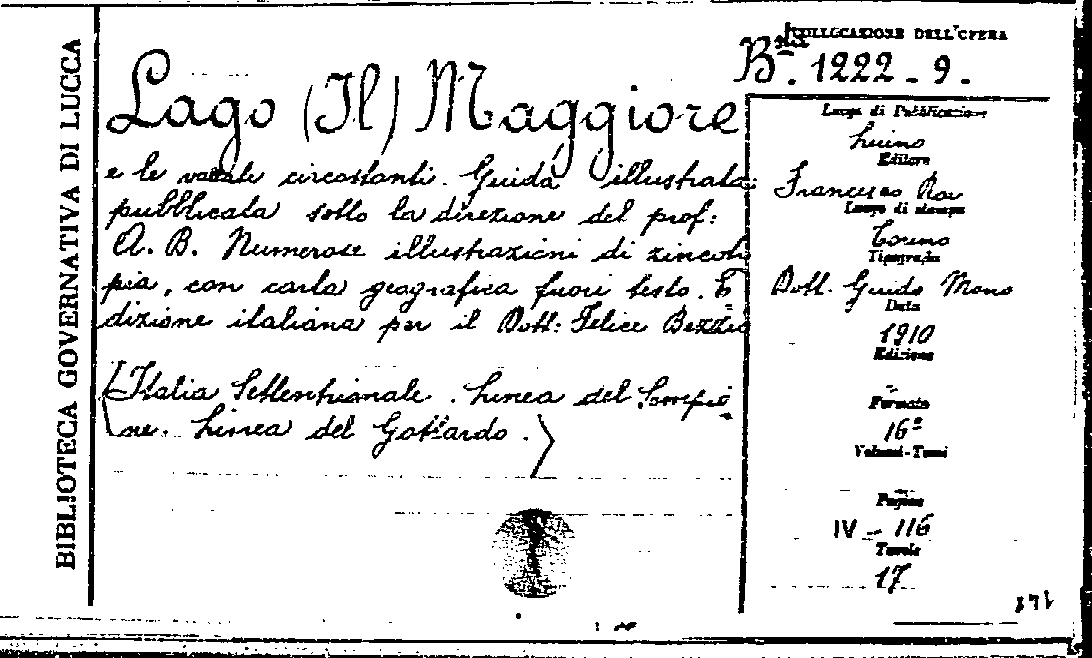 BIBLIOTECA GOVERNATIVA DI LUCCA
COLLOCAZIONE DELL'OPERA
B.ta 1222-9.
Lago (Il) Maggiore
e le vallate circostanti. Guida illustrata
pubblicata sotto la direzione del prof:
A. B. Numerose illustrazioni di zincoti
pia, con carta geografica fuori testo. E
dizione italiana per il Dott: Felice
(Italia Settentrionale. Linea del Sempio
ne. Linea del Gottardo.)
Luogo di Pubblicazione
Luino
Editore
Francesco
Luogo di stampa
Torino
Tipografia
Dott. Guido Mono
Data
1910
Edizione
Formato
16°
Volumi-Tomi
Pagine
IV-116
Tavole
17